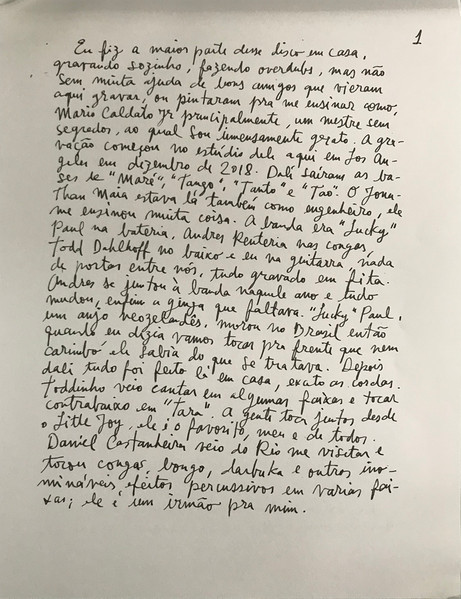 1
Eu fiz a maior parte desse disco em casa,
gravando sozinho, fazendo overdubs, mas não
sem muita ajuda de bons amigos que vieram
aqui gravar, ou pintaram pra me ensinar como,
Mario Caldato Jr principalmente, um mestre sem
segredos, ao qual sou imensamente grato. A gra-
vação começou no estúdio dele aqui em Los An-
geles em dezembro de 2018. Dali saíram as ba-
ses de "Maré", "Tango", "Tanto" e "Tao". O Jona-
than Maia estava lá também como engenheiro, ele
me ensinou muita coisa. A banda era "Lucky"
Paul na bateria, Andres Renteria nas congas,
Todd Dahlhoff no baixo e eu na guitarra, nada
de portas entre nós, tudo gravado em fita.
Andres se juntou à banda naquele ano e tudo
mudou, enfim a ginga que faltava. "Lucky" Paul,
um anjo neozelandês, morou no Brasil então
quando eu dizia vamos tocar pra frente que nem
carimbó ele sabia do que se tratava. Depois
dali tudo foi feito lá em casa, exato as cordas.
Toddinho veio cantar em algumas faixas e tocar
contrabaixo em "Tara". A gente toca juntos desde
o Little Joy, ele é o favorito, meu e de todos.
Daniel Castanheira veio do Rio me visitar e
tocou congas, bongo, darbuka e outros ino-
mináveis efeitos percussivos em varias fai-
xas; ele é um irmão pra mim.